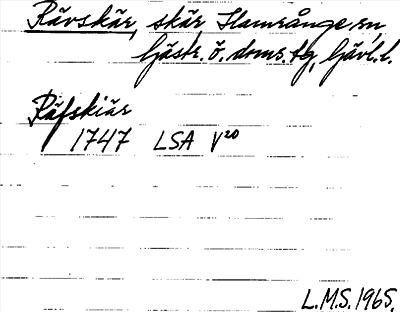 Rävskär, skär Hamrånge sn,
Gästr. ö. doms. tg, Gävl. l.
Räfskiär
1747 LSA V20
L.M.S. 1965.